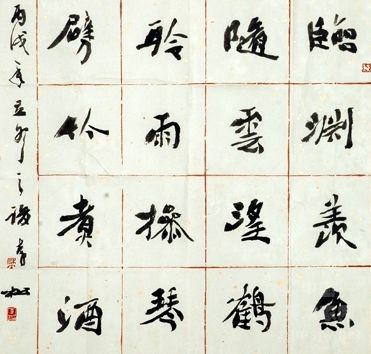 臨淵羨魚
隨雲望鶴
聆雨操琴
劈竹煮酒
丙戌年立